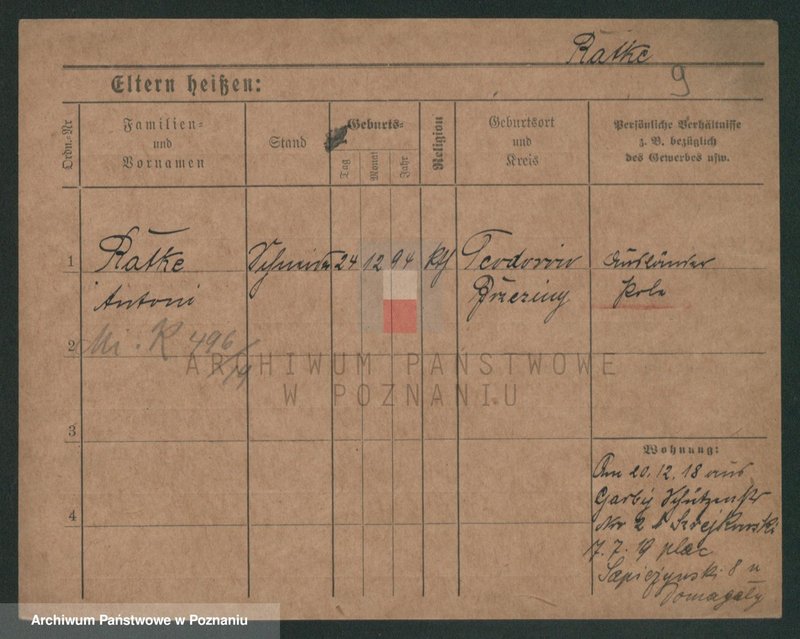 Ratke
9
Eltern heißen:
Ordn.-Nr
Familien-
und
Vornamen
Stand
Geburts-
Tag
Monat
Jahr
Religion
Geburtsort
und
Kreis
Persönliche Verhältnisse
z. B. bezüglich
des Gewerbes usw.
1 Ratke Schneider 24 12 94 kth Teodorów Ausländer
Antoni Brzeziny Pole
2 496/19
ARCHIWUM PAŃSTWOWE
W POZNANIU
3
Wohnung:
Am 20.12.18 aus
Garby Schützenstr
4 Nr 2
7.7.19 plac
Sapieżyński 8 u
Domagały
Archiwum Państwowe w Poznaniu